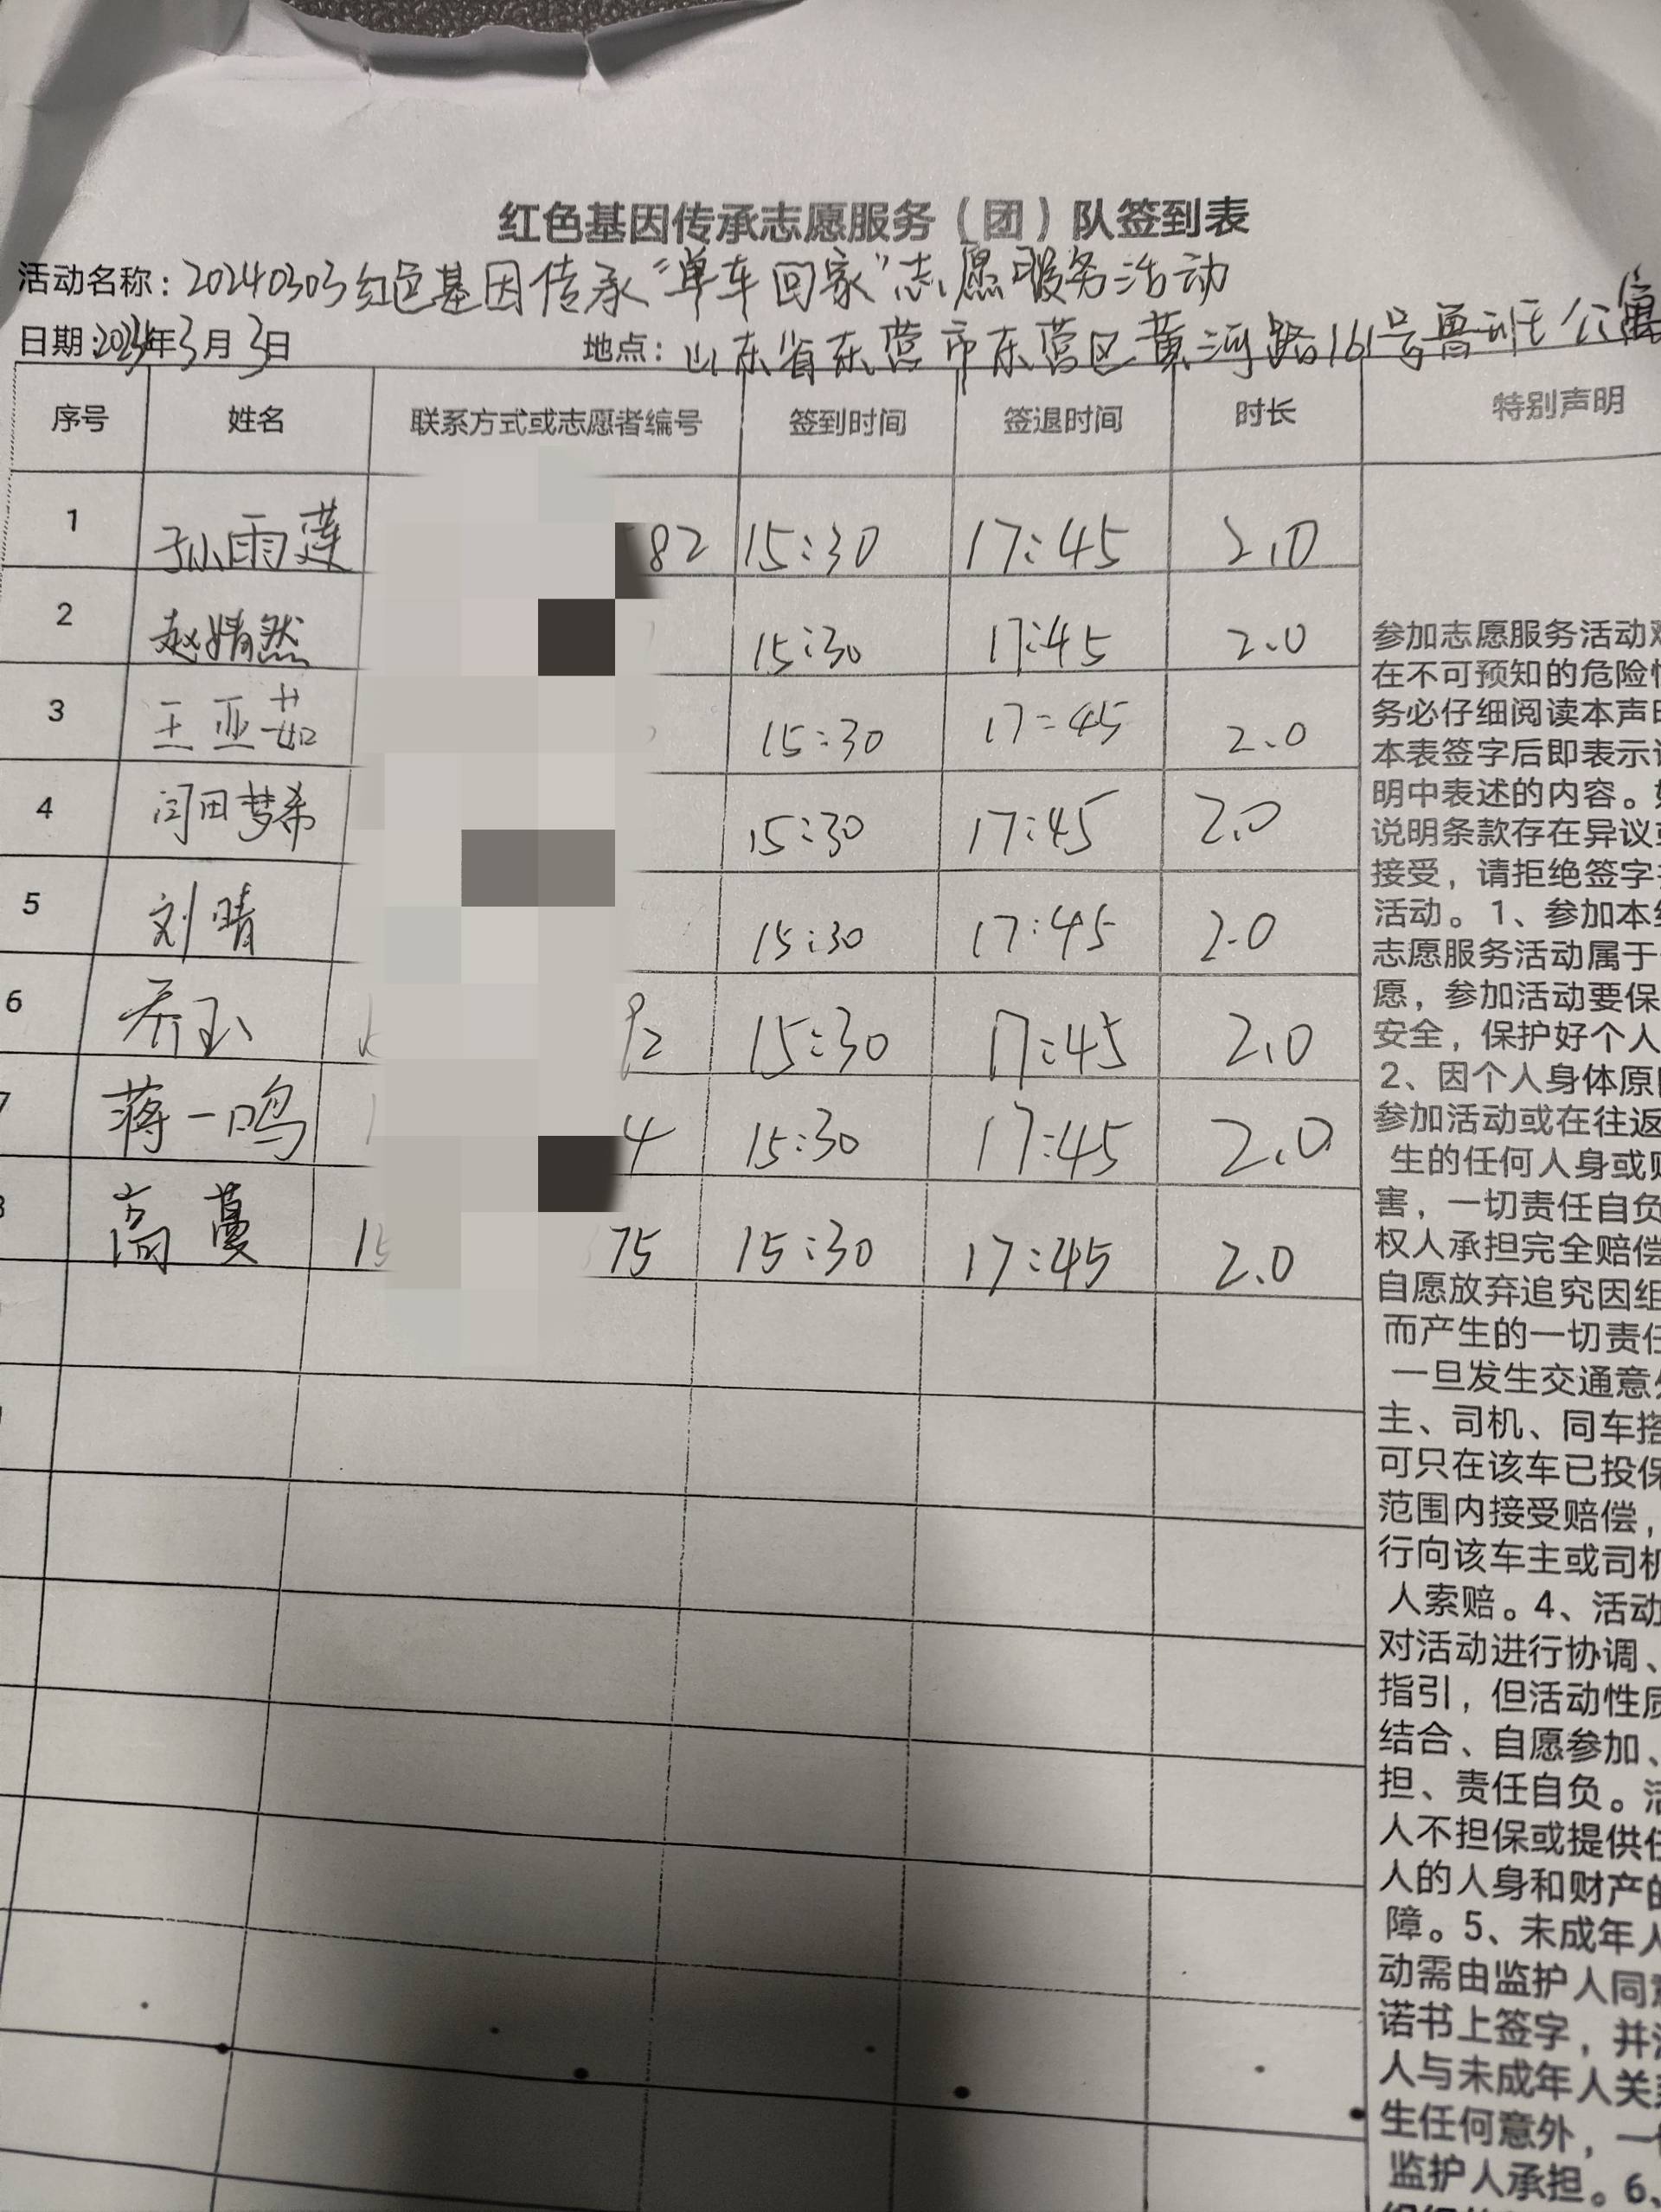 红色基因传承志愿服务（团）队签到表
活动名称：20240303红色基因传承“单车回家”志愿服务活动
日期：2024年3月3日 地点：山东省东营市东营区黄河路161号鲁班公寓
序号 姓名 联系方式或志愿者编号 签到时间 签退时间 时长 特别声明
1 孙雨莲 82 15:30 17:45 2.0
2 赵婧然 15:30 17:45 2.0
3 王亚茹 15:30 17:45 2.0
4 闫田梦希 15:30 17:45 2.0
5 刘晴 15:30 17:45 2.0
6 乔玉 92 15:30 17:45 2.0
7 蒋一鸣 4 15:30 17:45 2.0
高蔓 15 75 15:30 17:45 2.0
参加志愿服务活动
在不可预知的危险
务必仔细阅读本声
本表签字后即表示
明中表述的内容。
说明条款存在异议
接受，请拒绝签字
活动。1、参加本
志愿服务活动属于
愿，参加活动要保
安全，保护好个人
2、因个人身体原
参加活动或在往返
生的任何人身或
害，一切责任自负
权人承担完全赔偿
自愿放弃追究因组
而产生的一切责任
一旦发生交通意外
主、司机、同车搭
可只在该车已投保
范围内接受赔偿，
行向该车主或司机
人索赔。4、活动
对活动进行协调、
指引，但活动性质
结合、自愿参加、
担、责任自负。活
人不担保或提供任
人的人身和财产的
障。5、未成年人
动需由监护人同意
诺书上签字，并
人与未成年人关系
生任何意外，一
监护人承担。6、